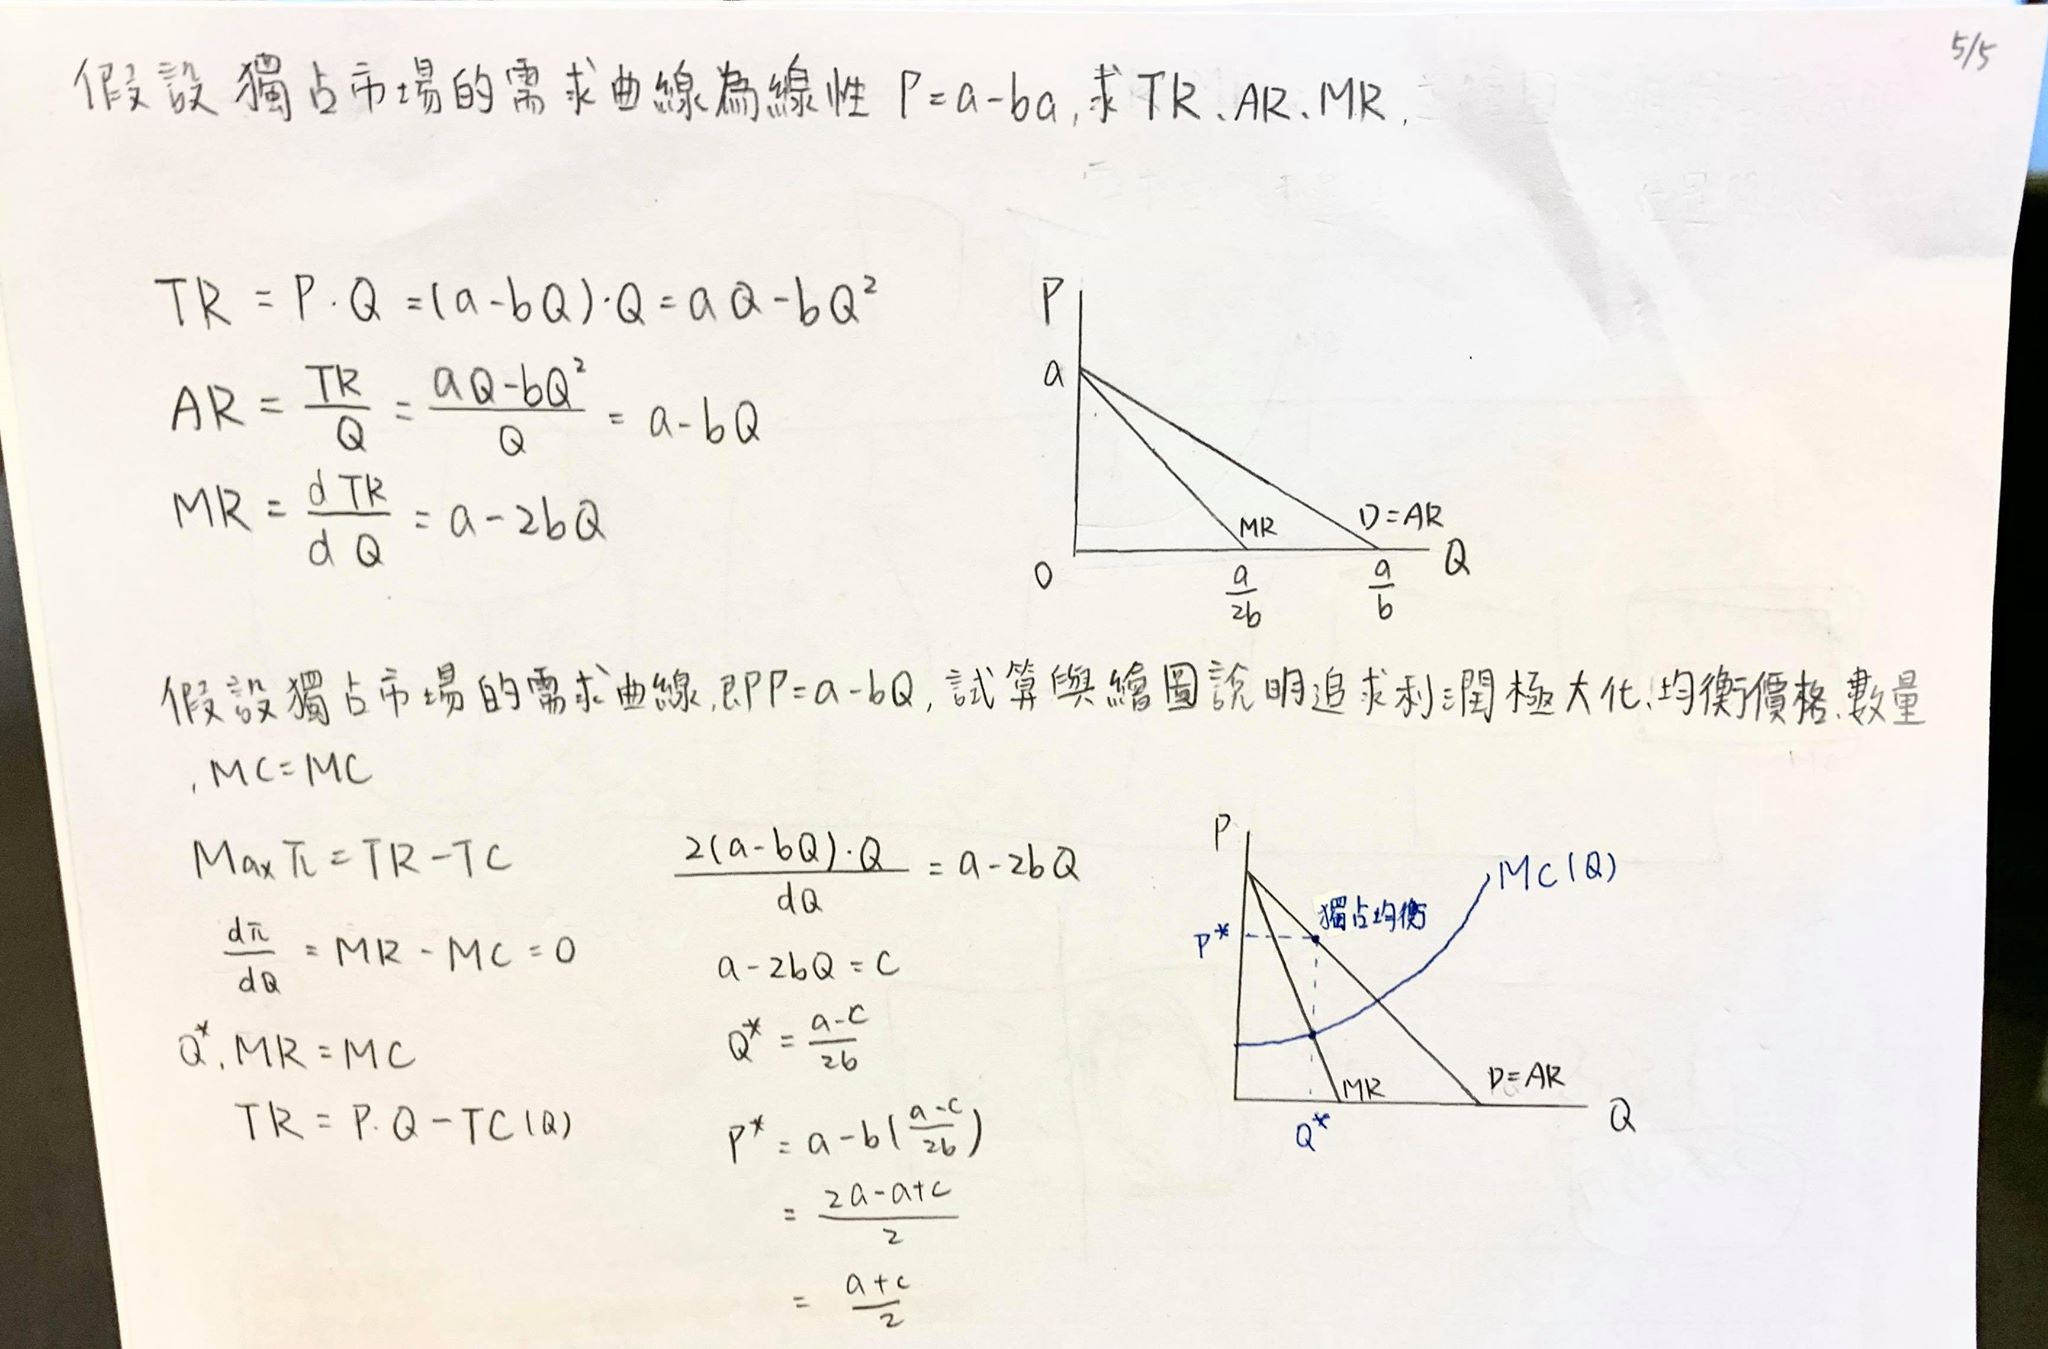 5/5
假設獨占市場的需求曲線為線性 P=a-ba,求TR、AR、MR.
TR = P·Q =(a-bQ)·Q = aQ-bQ²
AR = TR/Q = aQ-bQ²/Q = a-bQ
MR = dTR/dQ = a-2bQ
P
a
MR
D=AR
0
a/2b
a/b
Q
假設獨占市場的需求曲線,即PP=a-bQ,試算與繪圖說明追求利潤極大化、均衡價格、數量
,MC=MC
Max π = TR-TC
dπ/dQ = MR-MC=0
Q*, MR=MC
TR = P.Q-TC(Q)
2(a-bQ)·Q/dQ = a-2bQ
a-2bQ=C
Q* = a-c/2b
P* = a-b(a-c/2b)
= 2a-a+c/2
= a+c/2
P
MC(Q)
獨占均衡
P*
MR
D=AR
Q*
Q